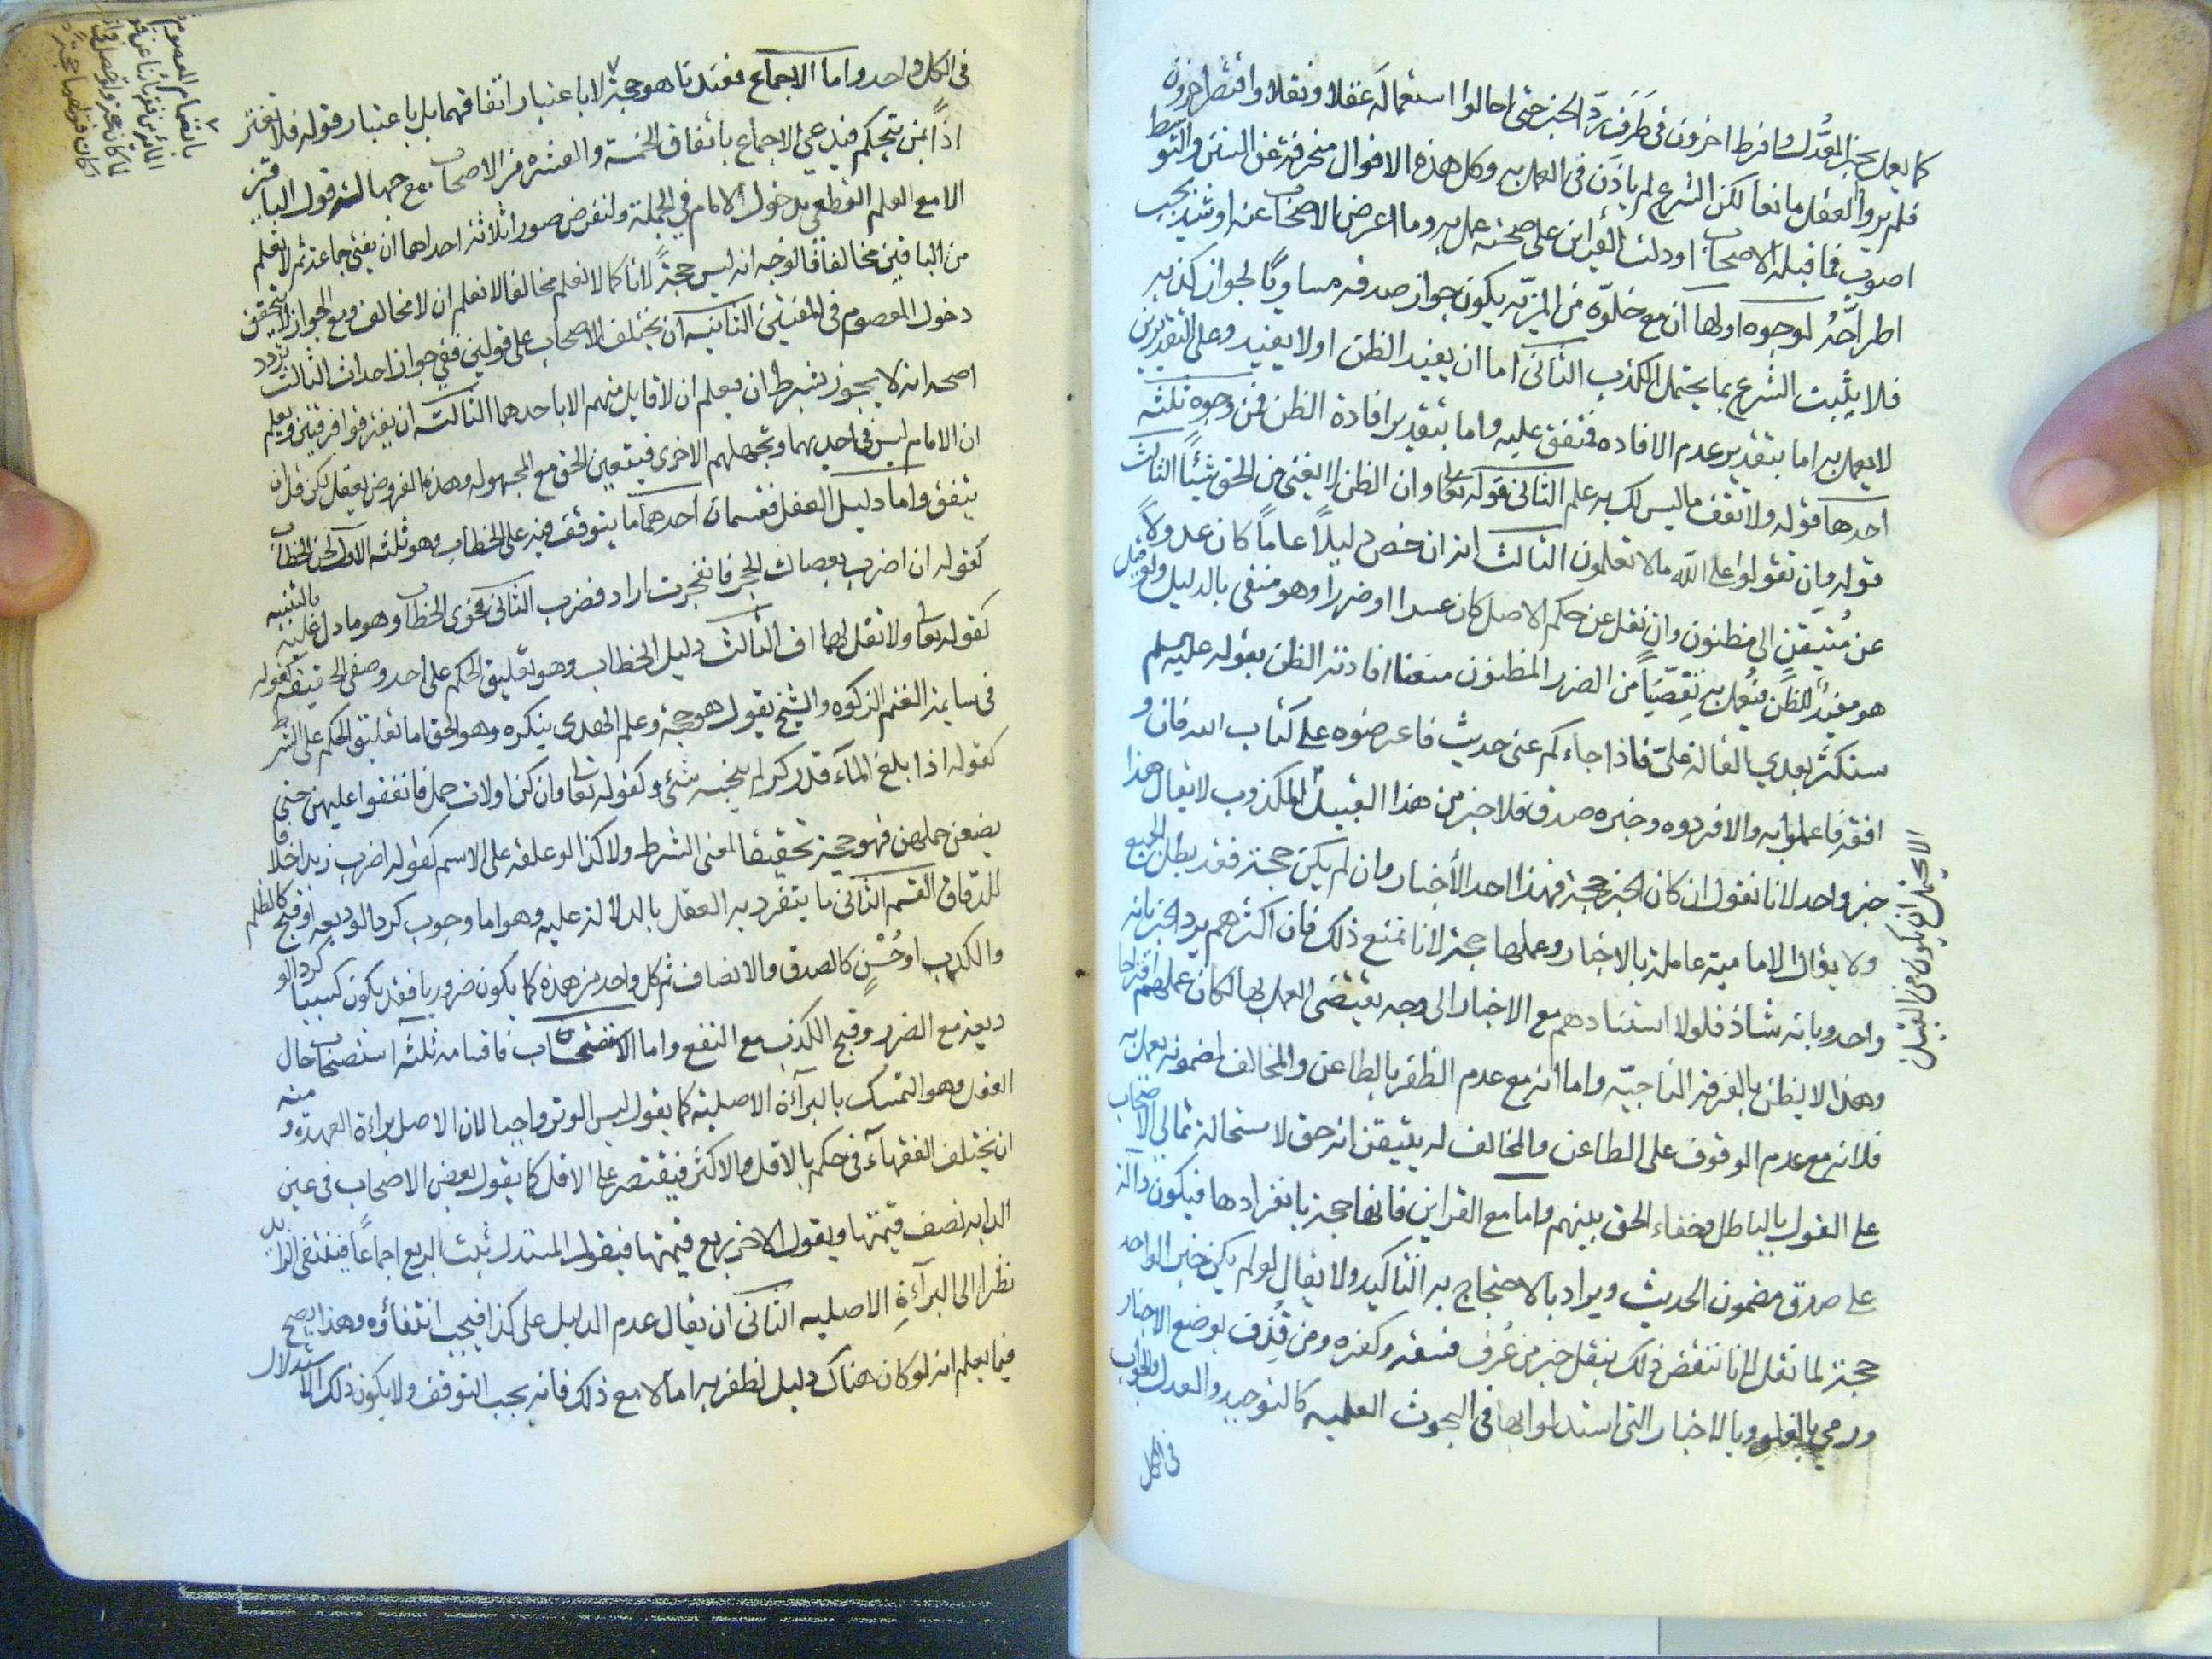 كما يعمل بخبر المعدل وافرط اخرون فى طرف ردّ الخبر حتى احالوا استعماله عقلا ونقلا واقتصر اخرون
فلم يروا العقل مانعا لكن الشرع لم يأذن فى العمل به وكل هذه الاقوال منحرفة عن السنن والتوسط
اصوب فما قبله الاصحاب او دلت القراين على صحته عمل به وما اعرض الاصحاب عنه او شذ يجب
اطراحه لوجوه اولها ان مع خلوّه من المزيّة يكون جواز صدقه مساويًا لجواز كذبه
فلا يثبت الشرع بما يحتمل الكذب الثانى اما ان يفيد الظن اولا يفيد وعلى التقديرين
لا يعمل به اما بتقدير عدم الافاده فمتفق عليه واما بتقدير افادة الظن فمن وجوه ثلثه
احدها قوله ولا تقف ما ليس لك به علم الثانى قوله تعالى وان الظن لا يغنى من الحق شيئًا الثالث
قوله وان تقولوا على الله ما لا تعلمون الثالث انه ان خص دليلًا عامًا كان عدولًا
عن متيقن الى مظنون وان نقل عن حكم الاصل كان عسرا او ضررا وهو منفى بالدليل ولو قيل
هو مفيدٌ للظن فيُعمل به تفصّيًا من الضرر المظنون منعنا افادته الظن بقوله عليه السلم
ستكثر بعدي القالة علىّ فاذا جاءكم عنى حديث فاعرضوه على كتاب الله فان و
افقه فاعملوا به والا فردوه وخبره صدق فلا خبر من هذا القبيل المكذوب لا يقال هذا
خبر واحد لانا نقول ان كان الخبر حجة فهذا احد الأخبار وان لم يكن حجة فقد بطل الجميع
ولا يقال الامامية عاملة بالاخبار وعملها حجة لانا نمنع ذلك فان اكثرهم يرد الخبر بانه
واحد وبانه شاذ فلولا استنادهم مع الاخبار الى وجه يقتضى العمل بها لكان عملهم اقتراحا
وهذا لا يظن بالفرقة الناجيّه واما انه مع عدم الظفر بالطاعن والمخالف لمضمونه يعمل به
فلانه مع عدم الوقوف على الطاعن والمخالف له يتيقن انه حق لاستحالة تمالى الاصحاب
على القول بالباطل وخفاء الحق بينهم واما مع القراين فانها حجة بانفرادها فيكون دالة
على صدق مضمون الحديث ويراد بالاحتجاج به التأكيد ولا يقال لو لم يكن خبر الواحد
حجة لما نقل لانا ننقض ذلك بنقل خبر من عُرف فسقه وكفره ومن قُذف بوضع الاخبار
ورمي بالغلو وبالاخبار التى استدلوا بها فى البحوث العلميه كالتوحيد والعدل والجواب
فى الكل
الا يحتمل ان يكون من القبيل
فى الكل واحد واما الاجماع فعندنا هو حجة لا باعتبار اتفاقهما بل باعتبار قوله فلا تغتر
اذًا بمن يتحكم فيدعي الاجماع باتفاق الخمسة والعشرة من الاصحاب مع جهالة قول الباقين
الا مع العلم القطعى بدخول الامام في الجملة ولنفرض صورا ثلاثة احداها ان يفتى جماعة ثم لا يعلم
من الباقين مخالفا فالوجه انه ليس حجةً لانا كما لا نعلم مخالفا لا نعلم ان لا مخالف ومع الجواز لا يتحقق
دخول المعصوم فى المفتيين الثانيه ان يختلف الاصحاب على قولين ففي جواز احداث الثالث تردد
اصحه انه لا يجوز بشرط ان يعلم ان لا قايل منهم الا باحدهما الثالثه ان يفترقوا فرقتين ويعلم
ان الامام ليس فى احديهما وتجهلهم الاخرى فيتعين الحق مع المجهوله وهذه الفروض تعقل لكن قل ان
يتفق واما دليل العقل فقسمان احدهما ما يتوقف فيه على الخطاب وهو ثلثه الاول لحن الخطاب
كقوله ان اضرب بعصاك الحجر فانفجرت اراد فضرب الثانى فحوى الخطاب وهو ما دل عليه بالتنبيه
كقوله تعالى ولا تقل لهما اف الثالث دليل الخطاب وهو تعليق الحكم على احد وصفى الحقيقه كقوله
فى سايمة الغنم الزكوه والشيخ يقول هو حجة وعلم الهدى ينكره وهو الحق اما تعليق الحكم على الشرط
كقوله اذا بلغ الماء قدر كر لم ينجسه شئ وكقوله تعالى وان كن اولات حمل فانفقوا عليهن حتى
يضعن حملهن فهو حجة تحقيقا لمعنى الشرط ولا كذا لو علقه على الاسم كقوله اضرب زيدا خلافا
للدقاق القسم الثانى ما يتفرد به العقل بالدلالة عليه وهو اما وجوب كرد الوديعه او قبح كالظلم
والكذب او حُسْنٍ كالصدق والانصاف ثم كل واحد من هذه كما يكون ضروريا فقد يكون كسبيا كرد الو
ديعة مع الضرر وقبح الكذب مع النفع واما الاستصحاب فاقسامه ثلثه استصحاب حال
العقل وهو التمسك بالبراءة الاصلية كما يقول ليس الوتر واجبا لان الاصل براءة العهدة ومنه
ان يختلف الفقهاء فى حكم بالاقل والاكثر فيقتصر على الاقل كما يقول بعض الاصحاب فى عين
الدابه نصف قيمتها ويقول الاخر ربع قيمتها فيقول المستدل ثبت الربع اجماعًا فينتفى الزايد
نظرا الى البراءةِ الاصليه الثانى ان يقال عدم الدليل على كذا فيجب انتفاؤه وهذا يصح
فيما يعلم انه لو كان هناك دليل لظفر به اما لا مع ذلك فانه يجب التوقف ولا يكون ذلك الاستدلال
بانضمام المعصوم